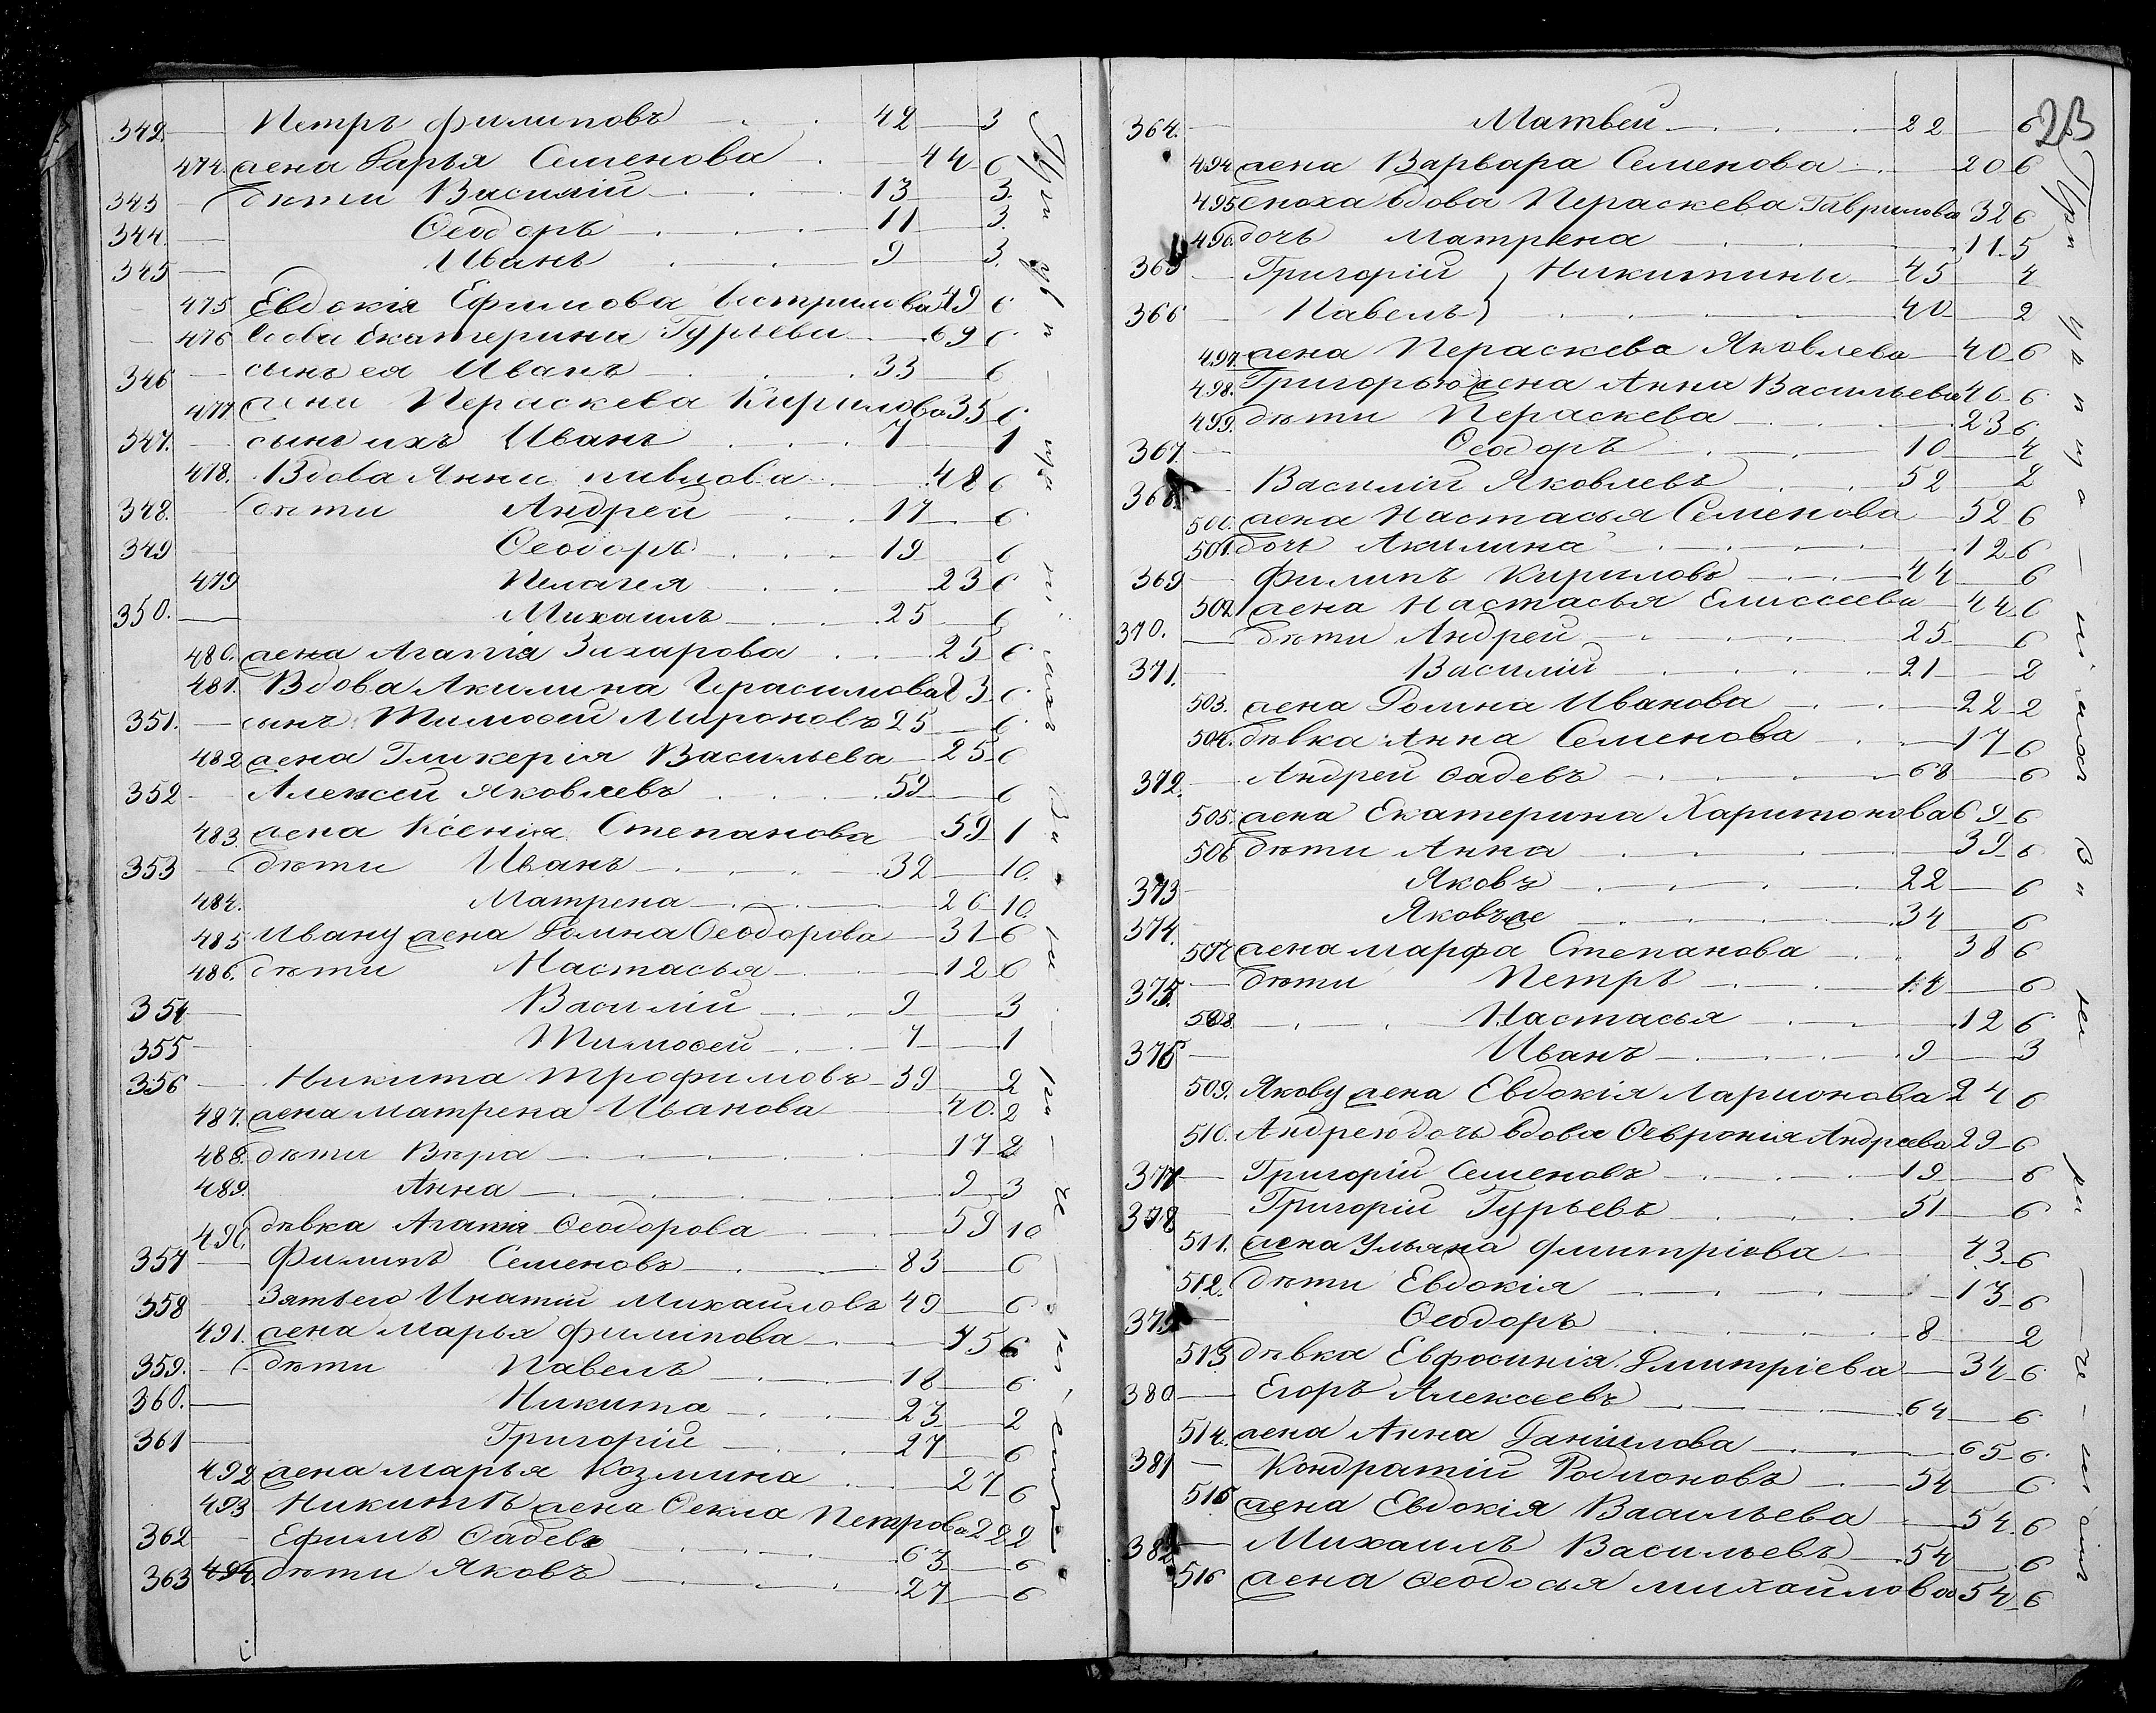 342. Петръ Филиповъ 42 3
474 жена Дарья Семенова 44 6
343 дѣти Василій 13 3.
344 Ѳеодоръ 11 3.
345 Иванъ 9 3.
475 Евдокія Ефимова 49 6
476 вдова Екатерина Гурьева 69 6
346 сынъ ея Иванъ 33 6
477. жена Пераскева Кирилова 35 6
347. сынъ ихъ Иванъ 7 1
478. Вдова Анна Павлова 48 6
348. дѣти Андрей 17 6
349 Ѳеодоръ 19 6
479 Пелагея 23 6
350. Михаилъ 25 6
480. жена Агапія Захарова 25 6
481. Вдова Акилина Герасимова 83 6
351. сынъ Тимоѳей Мироновъ 25 6
482 жена Гликерія Васильева 25 6
352 Алексей Яковлевъ 59 6
483. жена Ксенія Степанова 59 1
353 дѣти Иванъ 32 10.
484. Матрена 26 10.
485 Ивану жена Домна Ѳеодорова 31 6
486. дѣти Настасья 12 6
354 Василій 9 3
355 Тимоѳей 7 1
356 Никита Трофимовъ 39 2
487. жена Матрена Иванова 40. 2
488. дѣти Вѣра 17 2
489. Анна 9 3
490. дѣвка Агапія Ѳеодорова 59 10
357 Филипъ Семеновъ 83 6
358 Зять его Игнатій Михайловъ 49 6
491. жена Марья Филипова 45 6
359. дѣти Павелъ 18 6
360. Никита 23 2
361 Григорій 27 6
492 жена Марья Козмина 27 6
493 Никитѣ жена Ѳекла Петрова 22 2
362 Ефимъ Ѳадевъ 63 6
363 494. дѣти Яковъ 27 6
23
364. Матвей 22 6
494 жена Варвара Семенова 20 6
495 сноха вдова Пераскева Гаврилова 32 6
496. дочь Матрена 11 5
365 Григорій } Никитины 45 4
366 Павелъ } 40 2
497. жена Пераскева Яковлева 40 6
498. Григорью жена Анна Васильева 46 6
499. дѣти Пераскева 23 6
367. Ѳеодоръ 10 4
368. Василій Яковлевъ 52 2
500. жена Настасья Семенова 52 6
501. дочь Акилина 12 6
369 Филипъ Кириловъ 44 6
502. жена Настасья Елисеева 44 6
370. дѣти Андрей 25 6
371. Василій 21 2
503. жена Домна Иванова 22 2
504. дѣвка Анна Семенова 17 6
372. Андрей Ѳадевъ 68 6
505. жена Екатерина Харитонова 69 6
506 дѣти Анна 39 6
373 Яковъ 22 6
374. Яковъ же 34 6
507 жена Марфа Степанова 38 6
375. дѣти Петръ 14 6
508. Настасья 12 6
376 Иванъ 9 3
509. Якову жена Евдокія Ларионова 24 6
510. Андрею дочь вдова Ѳевронія Андреева 29 6
377 Григорій Семеновъ 19 6
378 Григорій Гурьевъ 51 6
511. жена Ульяна Дмитріева 43 6
512. дѣти Евдокія 13 6
379 Ѳеодоръ 8 2
513 дѣвка Евфросинія Дмитріева 34 6
380 Егоръ Алексеевъ 64 6
514. жена Анна Данилова 65 6
381 Кондратій Родионовъ 54 6
515 жена Евдокія Васильева 54 6
382 Михаилъ Васильевъ 54 6
516 жена Ѳеодосья Михайлова 54 6